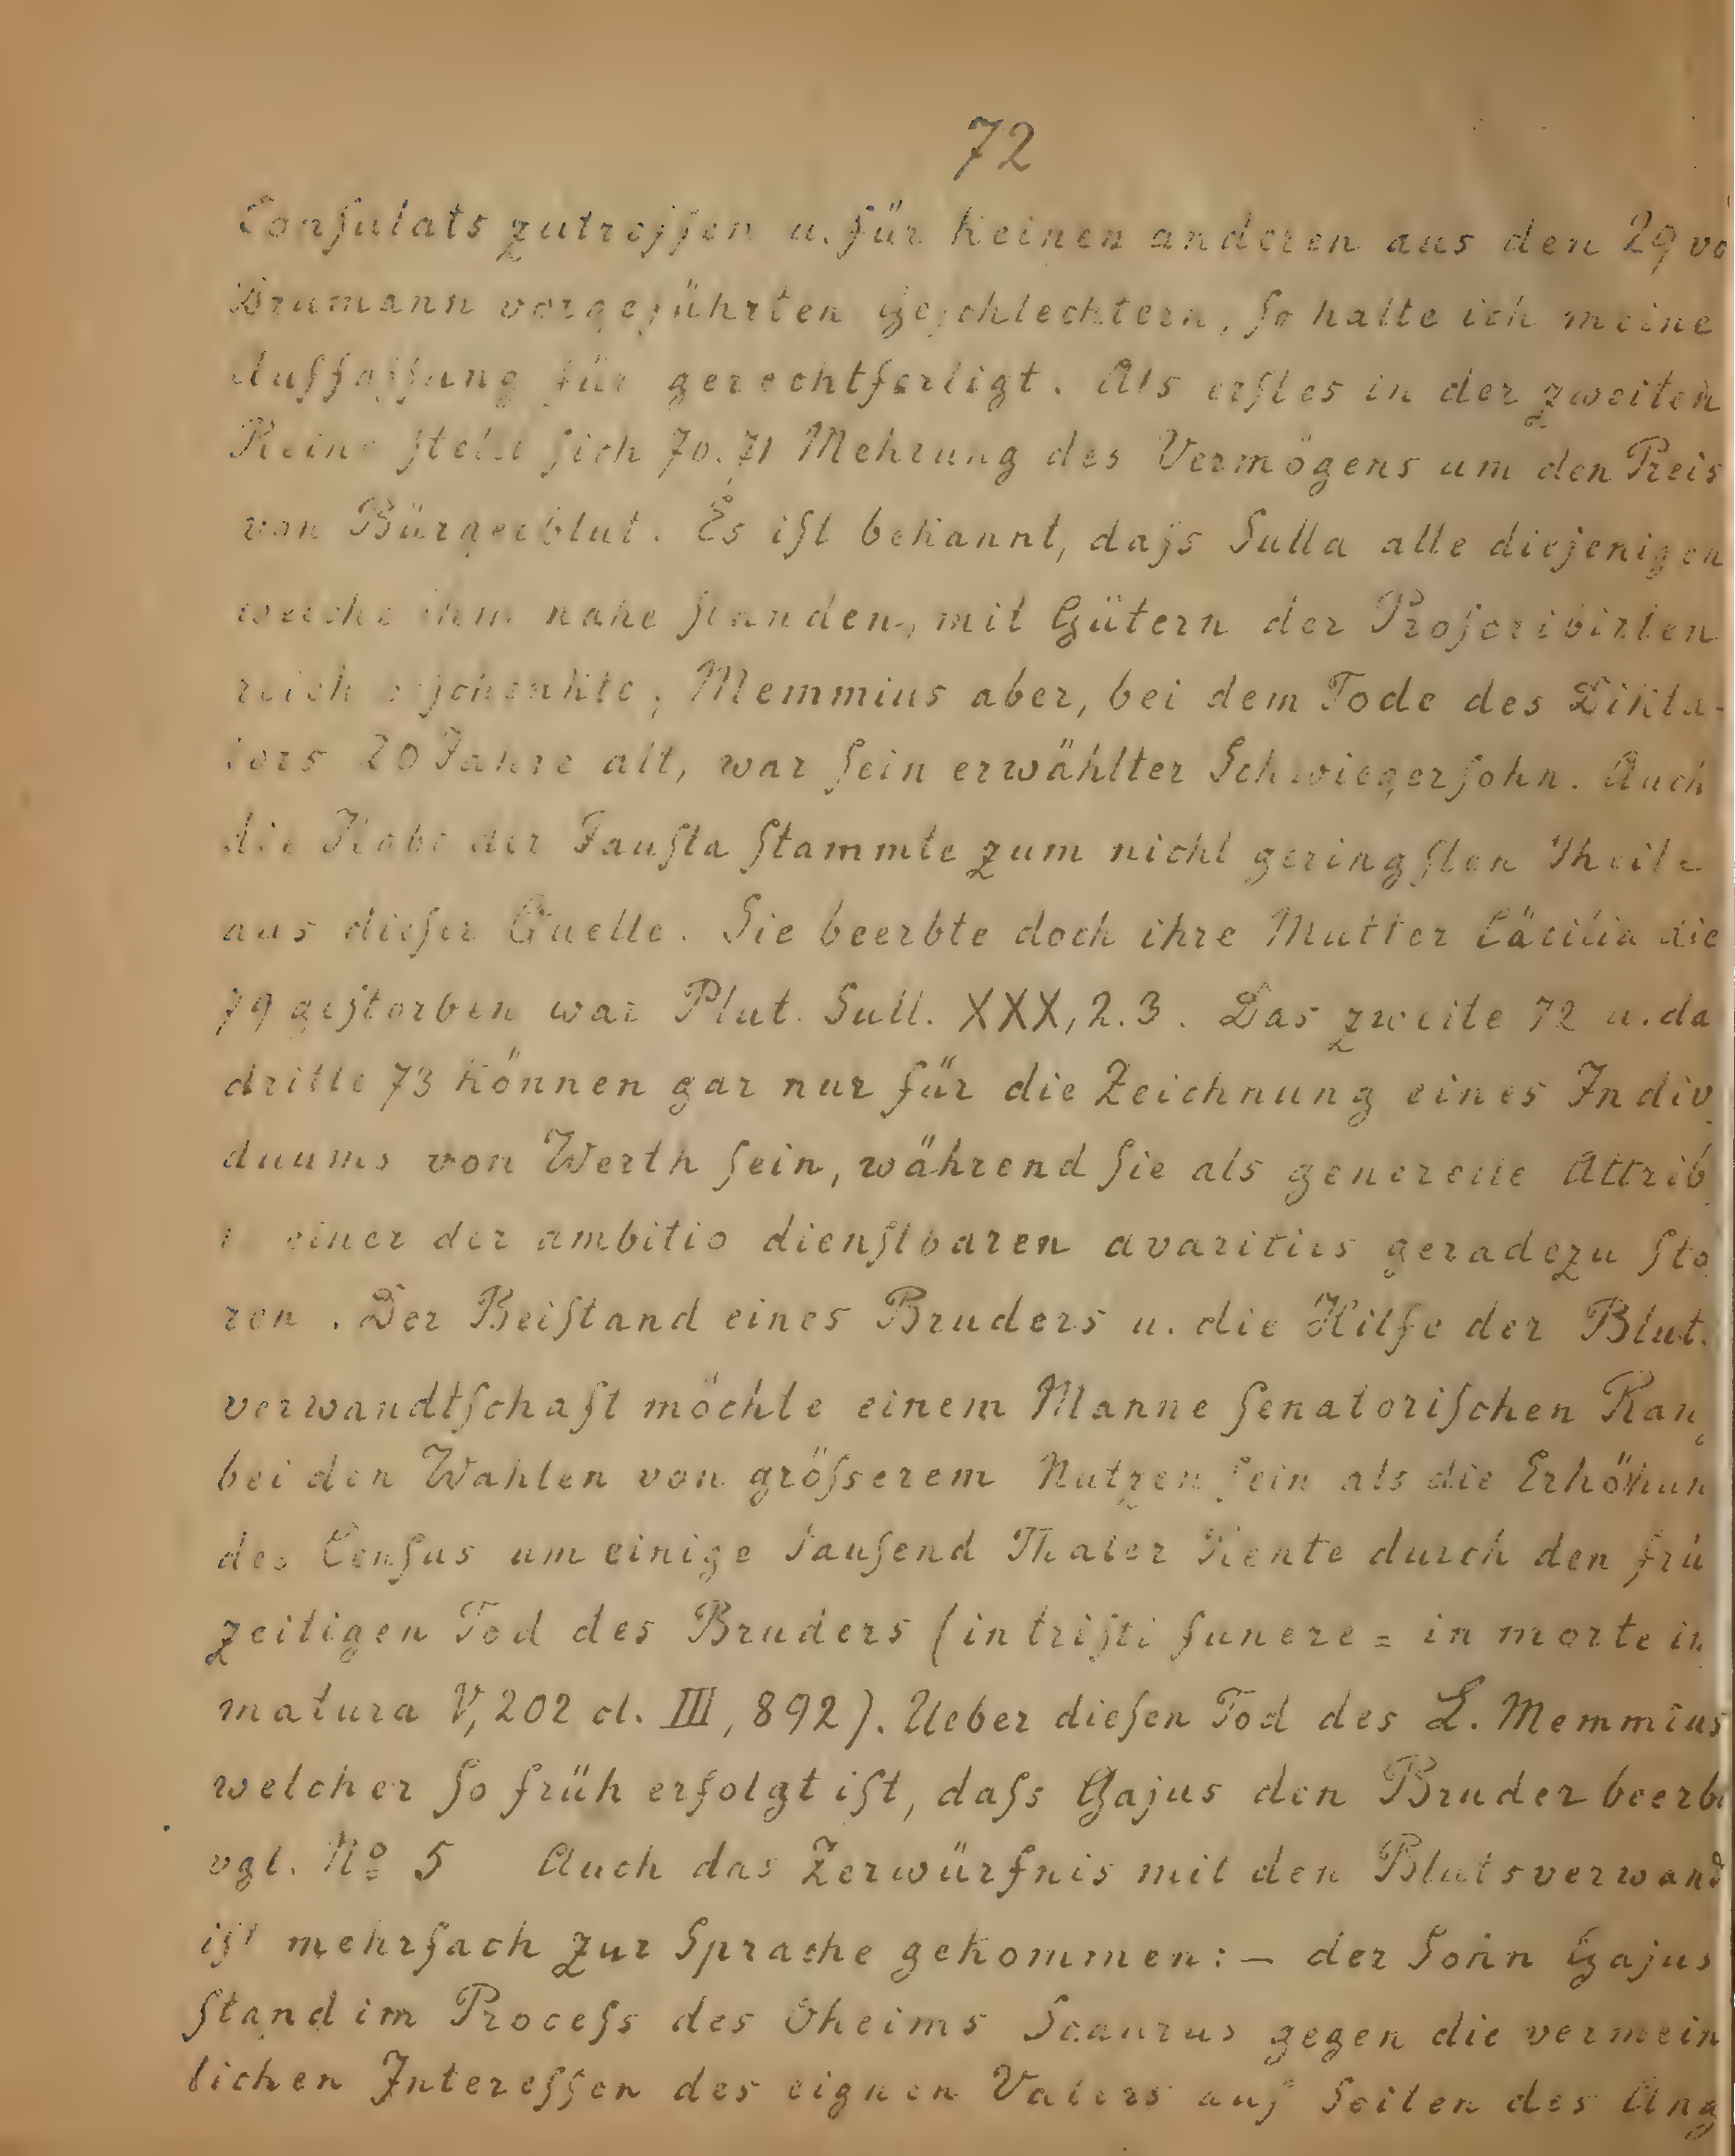 72
Conſulats zutreffen u. für keinen anderen aus den 29 vo
Drumann vorgeführten Geſchlechtern, ſo halte ich meine
Auffaſſung für gerechtfertigt. Als erſtes in der zweiten
Reihe ſtellt ſich 70. 71 Mehrung des Vermögens um den Preis
von Bürgerblut. Es iſt bekannt, daſs Sulla alle diejenigen
welche ihm nahe ſtanden, mit Gütern der Proſcribirten
reich beſchenkte; Memmius aber, bei dem Tode des Dikta-
tors 20 Jahre alt, war ſein erwählter Schwiegerſohn. Auch
die Habe der Fauſta ſtammte zum nicht geringſten Theile
aus dieſer Quelle. Sie beerbte doch ihre Mutter Cäcilia die
79 geſtorben war Plut. Sull. XXX, 2. 3. Das zweite 72 u. da
dritte 73 können gar nur für die Zeichnung eines Indiv
duums von Werth ſein, während ſie als generelle Attrib
einer der ambitio dienſtbaren avarities geradezu ſtö
ren. Der Beiſtand eines Bruders u. die Hilfe der Blut.
verwandtſchaft möchte einem Manne ſenatoriſchen Ran
bei den Wahlen von gröſserem Nutzen ſein als die Erhöhun
des Cenſus um einige Tauſend Thaler Rente durch den frü
zeitigen Tod des Bruders (in triſti funere = in morte im
matura V, 202 cl. III, 892). Ueber dieſen Tod des L. Memmius
welcher ſo früh erfolgt iſt, daſs Gajus den Bruder beerb
vgl. Nº 5 Auch das Zerwürfnis mit den Blutsverwand
iſt mehrfach zur Sprache gekommen: – der Sohn Gajus
ſtand im Proceſs des Oheims Scaurus gegen die vermein
lichen Intereſſen des eignen Vaters auf Seiten des Ang